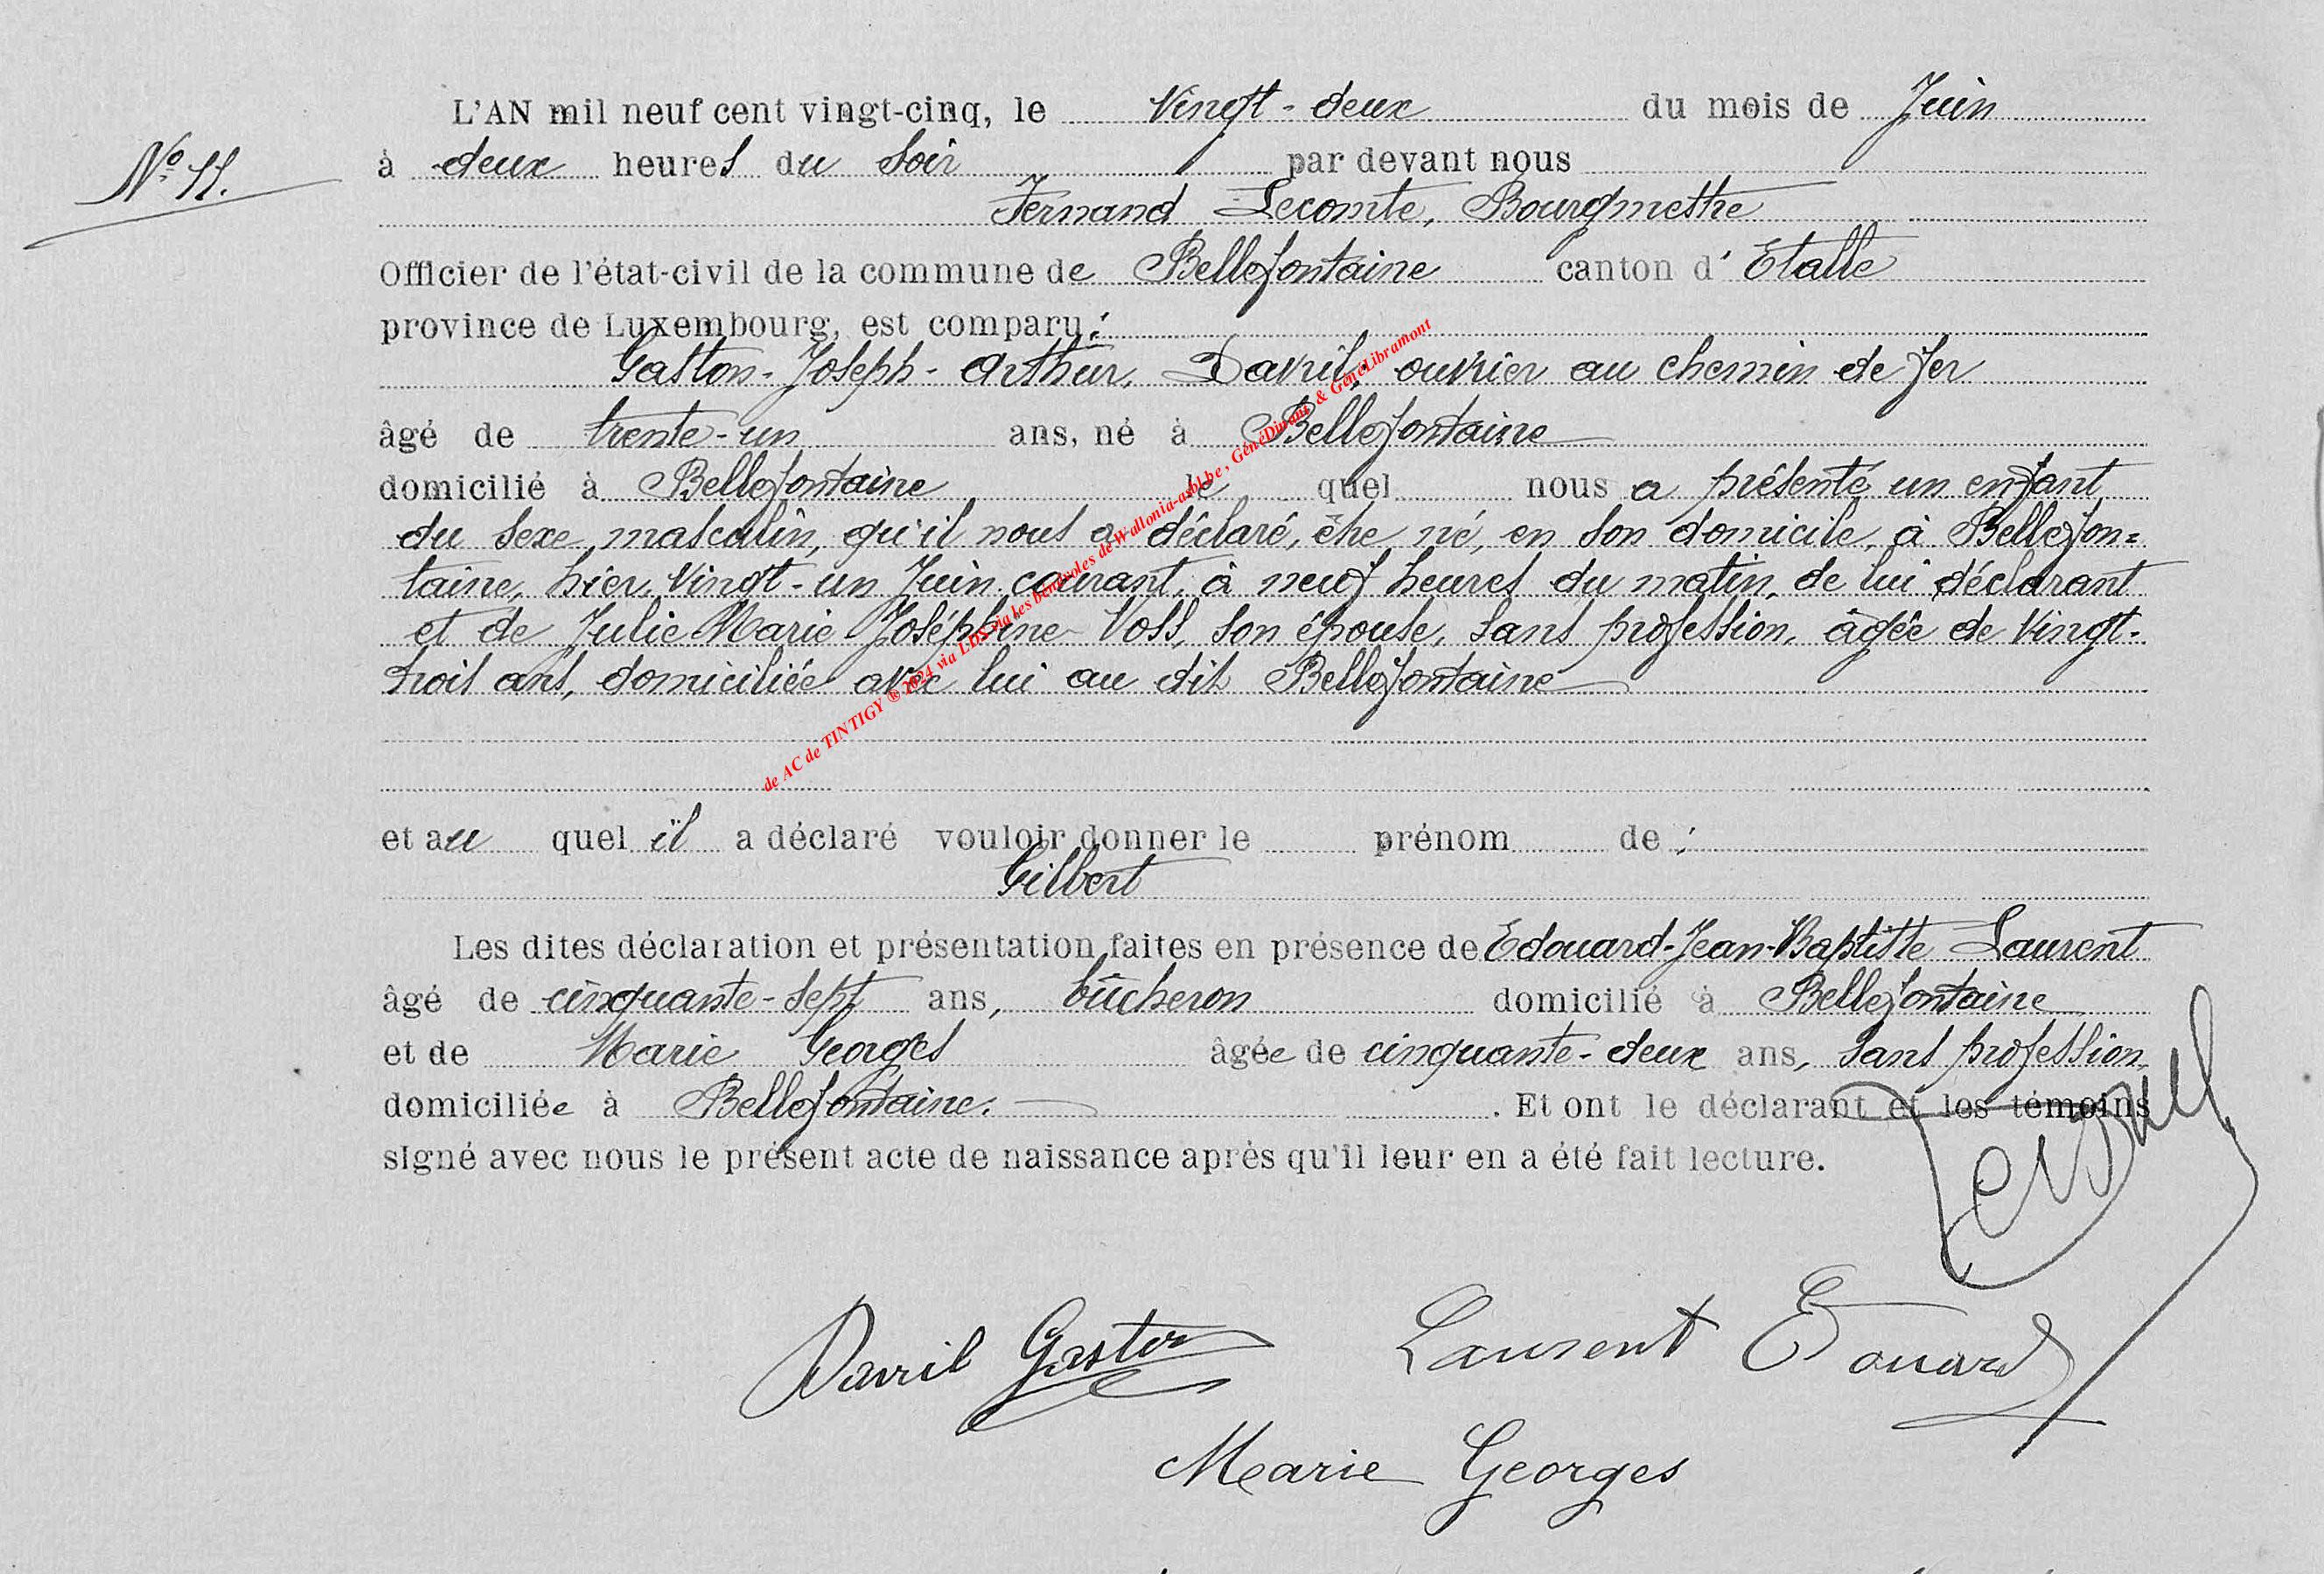 L'AN mil neuf cent vingt-cinq, le Vingt-deux du mois de Juin
N° 11.
à deux heures du soir par devant nous
Fernand Lecomte, Bourgmestre
Officier de l'état-civil de la commune de Bellefontaine canton d'Etalle
province de Luxembourg, est comparu:
Gaston-Joseph-Arthur, Davril, ouvrier au chemin de fer
âgé de trente-un ans, né à Bellefontaine
domicilié à Bellefontaine le quel nous a présenté un enfant
du sexe masculin, qu'il nous a déclaré, être né, en son domicile, à Bellefon=
taine, hier, Vingt-un Juin courant, à neuf heures du matin, de lui déclarant
et de Julie Marie Joséphine Voss, son épouse, sans profession, âgée de Vingt-
trois ans, domiciliée avec lui au dit Bellefontaine
de AC de TINTIGY ® 2024 via LDS via les bénévoles de Wallonia-asbl.be, GénéDinant & GénéLibramont
et au quel il a déclaré vouloir donner le prénom de :
Gilbert
Les dites déclaration et présentation faites en présence de Edouard-Jean-Baptiste Laurent
âgé de cinquante-sept ans, bûcheron domicilié à Bellefontaine
et de Marie Georges âgée de cinquante-deux ans, sans profession
domiciliée à Bellefontaine. . Et ont le déclarant et les témoins
signé avec nous le présent acte de naissance après qu'il leur en a été fait lecture.
Davril Gaston Laurent Edouard
Marie Georges